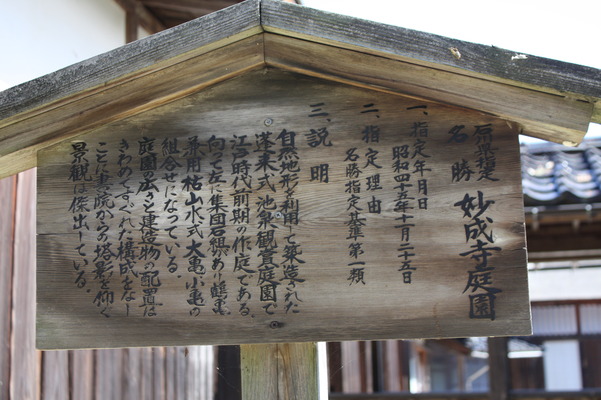 石川県指定
名勝 妙成寺庭園
一、指定年月日
昭和四十三年十月二十五日
二、指定理由
名勝指定基準第一類
三、説明
自然地形を利用して築造された
蓬来式池泉観賞庭園で
江戸時代前期の作庭である。
向って左に集団石組があり鶴亀
兼用枯山水式大亀小亀の
組合せになっている。
庭園の広さと建造物の配置は
きわめてすぐれた構成をなし
ことに書院からの塔影を仰ぐ
景観は傑出している。